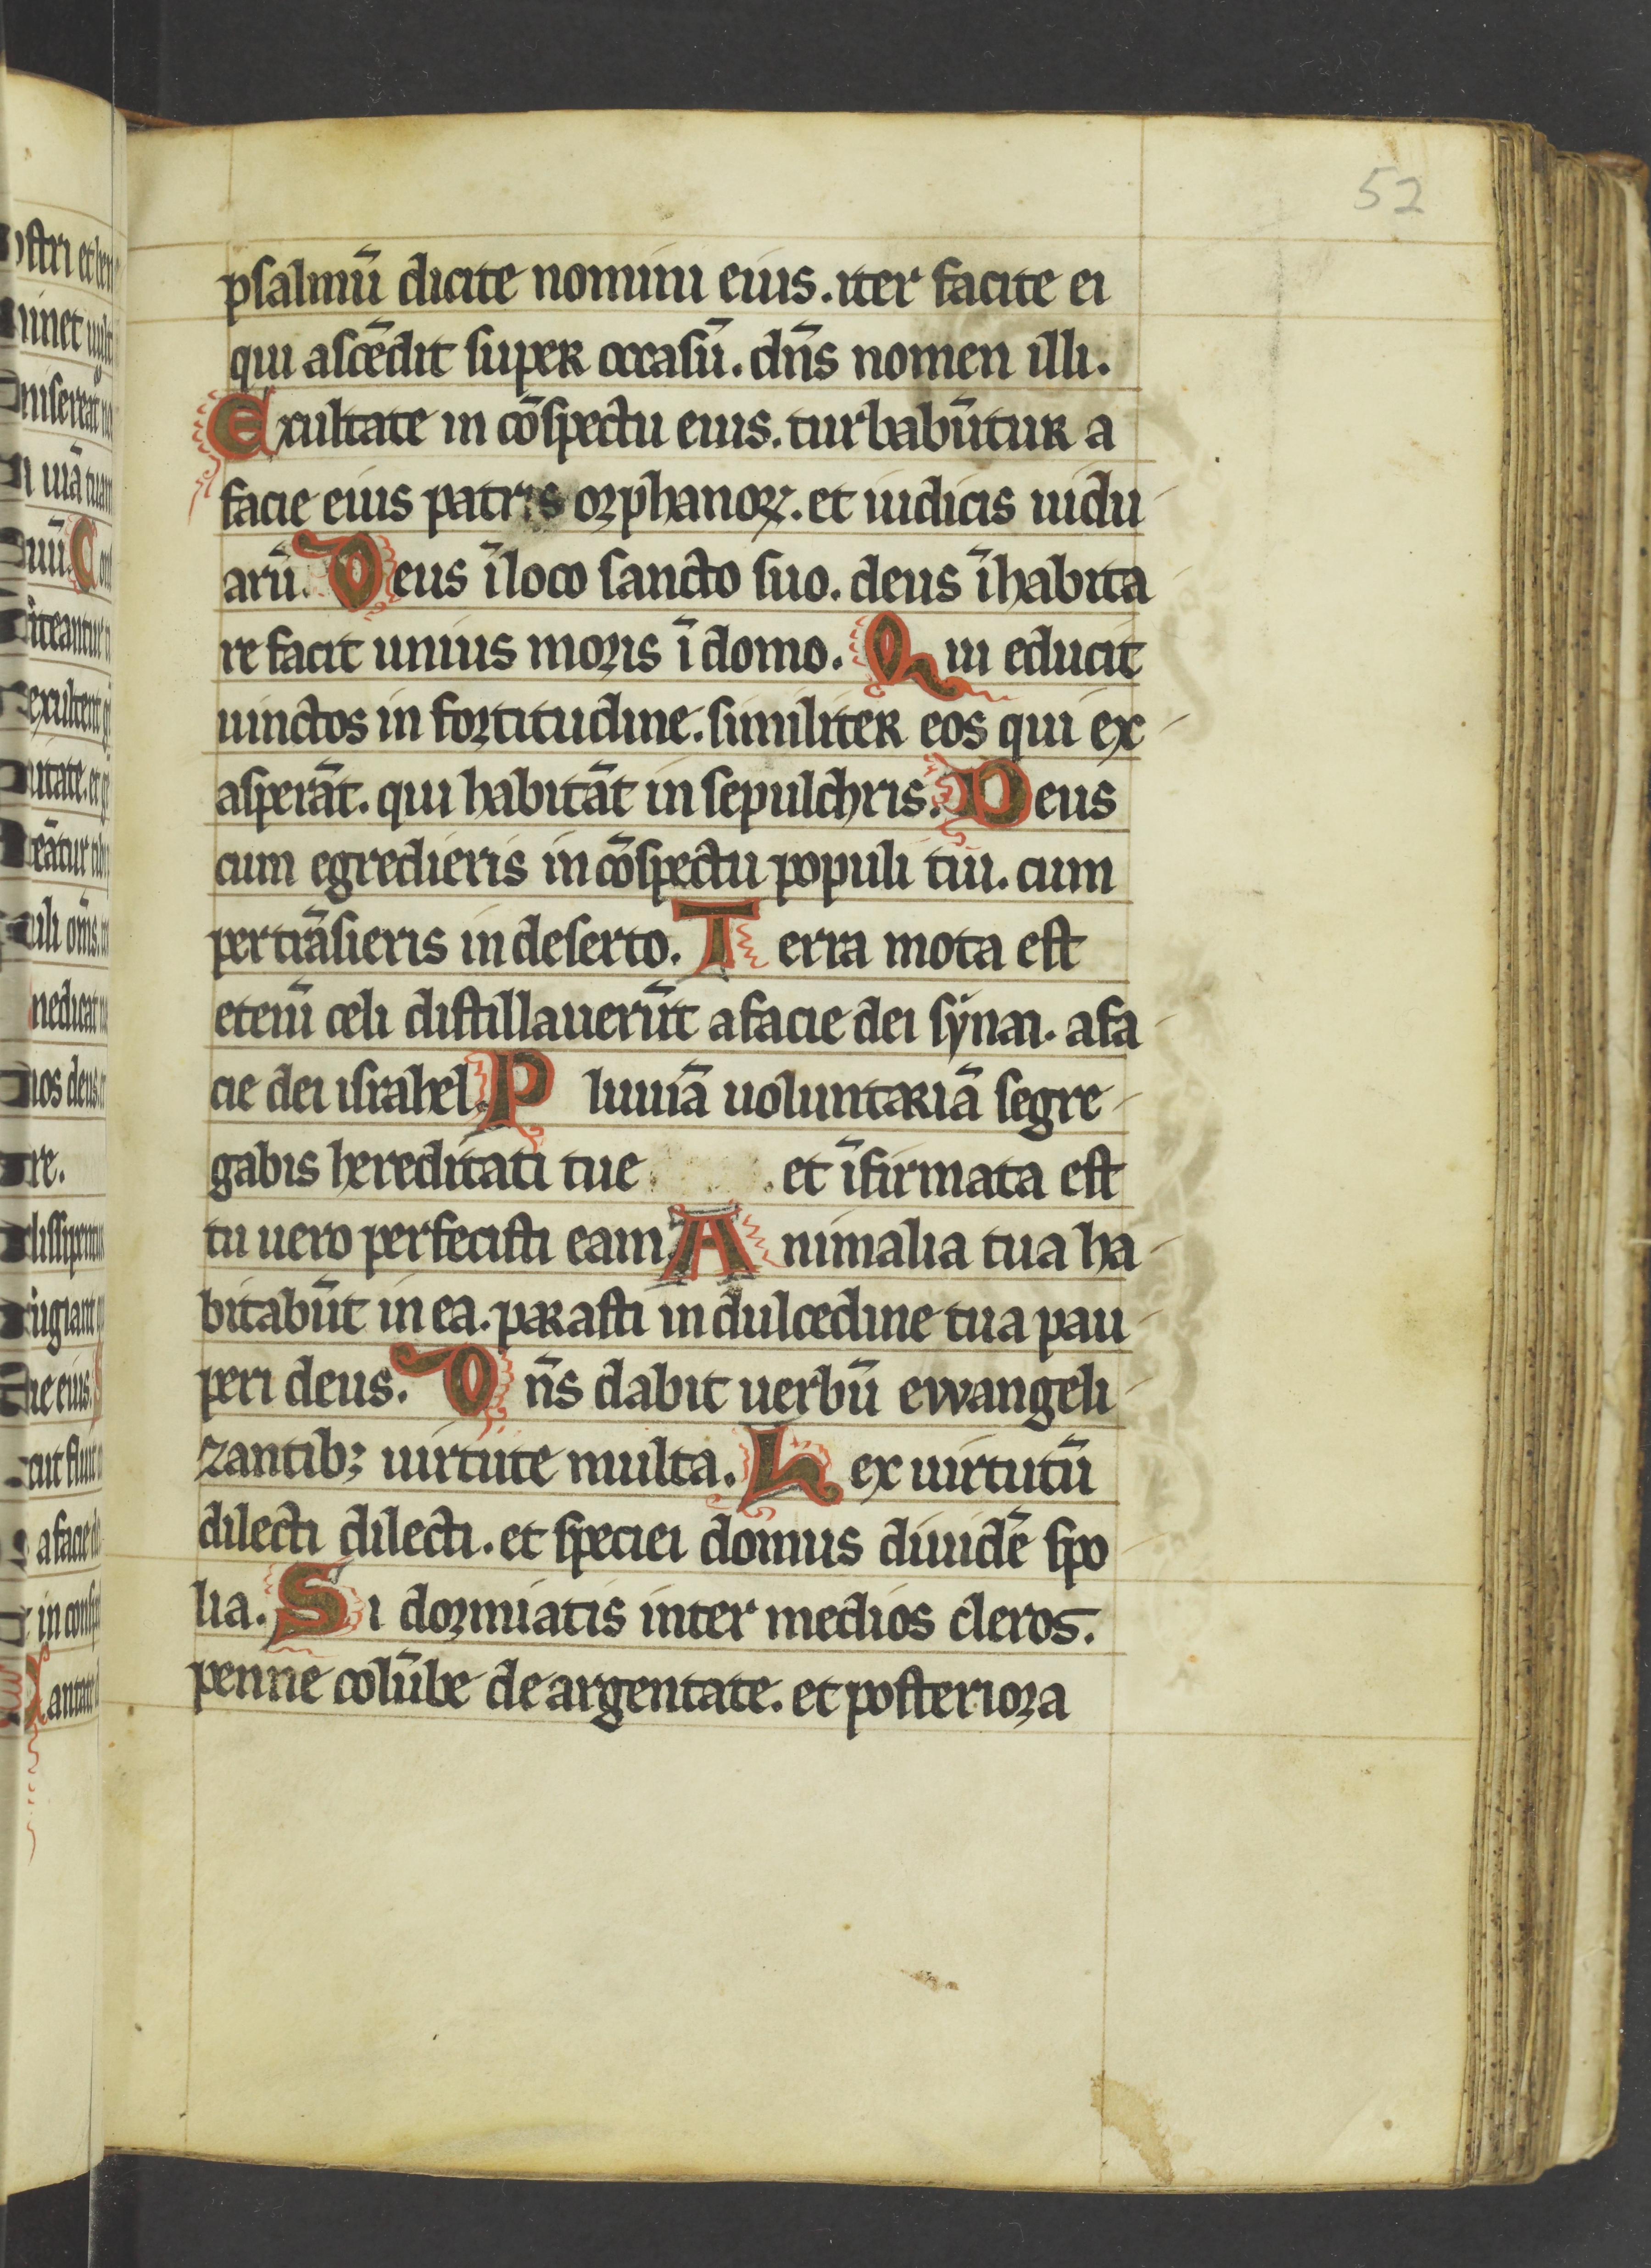 52
psalmū dicite nomini eius. iter facite ei
qui ascēdit super occasū. dn̄s nomen illi.
Exultate in cōspectu eius. turbabūtur a
facie eius patris orphanoꝝ. et iudicis uidu
arū. Deus ī loco sancto suo. deus īhabita
re facit unius moris ī domo. Qui educit
uinctos in fortitudine. similiter eos qui ex
asperāt. qui habitāt in sepulchris. Deus
cum egredieris in cōspectu populi tui. cum
pertrāsieris in deserto. Terra mota est
etenī celi distillauerūt a facie dei synai. a fa
cie dei israhel. Pluuiā uoluntariā segre
gabis hereditati tue . et īfirmata est
tu uero perfecisti eam. Animalia tua ha
bitabūt in ea. parasti in dulcedine tua pau
peri deus. Dn̄s dabit uerbū ewangeli
zantibꝫ uirtute multa. Lex uirtutū
dilecti dilecti. et speciei domus diuidē spo
lia. Si dormiatis inter medios cleros.
penne colūbe de argentate. et posteriora